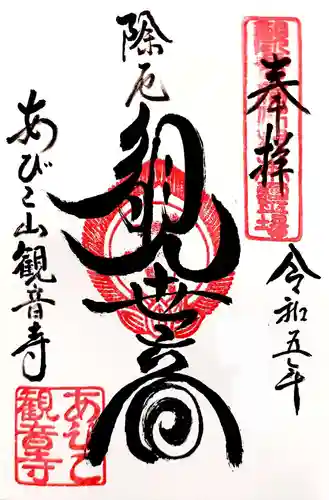 奉拝
令和五年
除厄
観世音
あびこ山観音寺
あびこ
観音寺